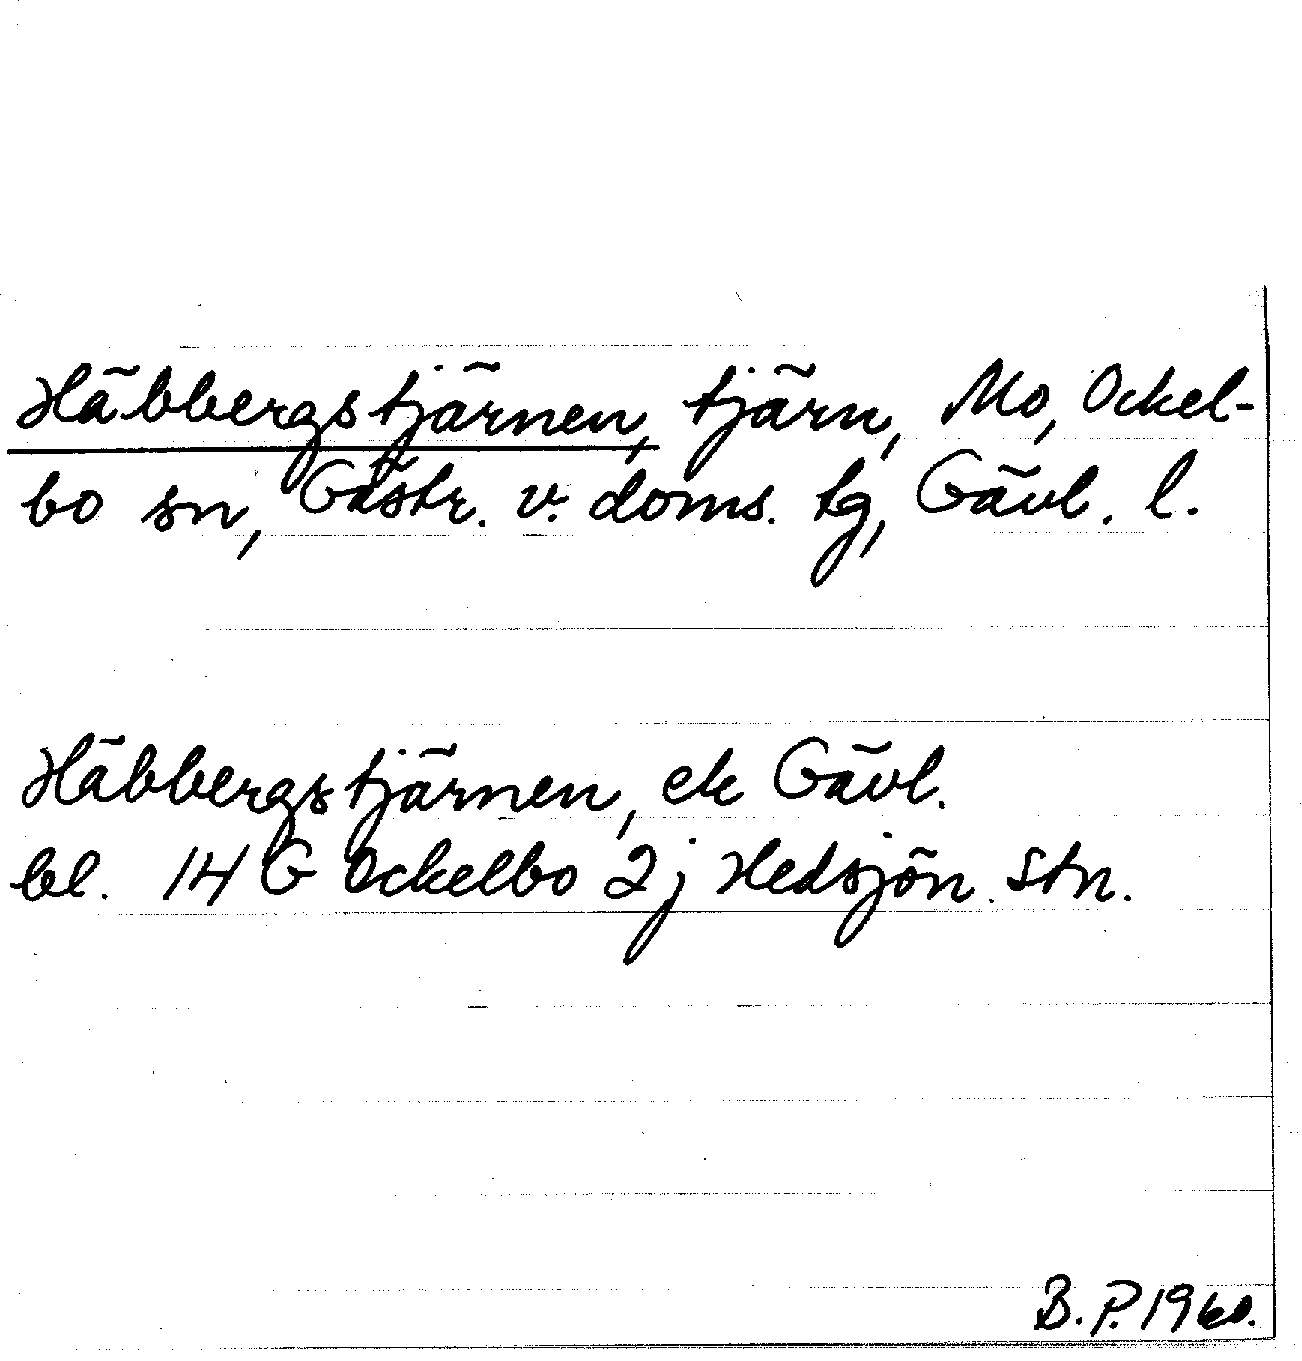 Häbbergstjärnen, tjärn, Mo, Ockel-
bo sn, Gästr. v. doms. tg, Gävl. l.
Häbbergstjärnen, ek Gävl.
bl. 14 G Ockelbo 2j Hedsjön stn.
B.P. 1960.